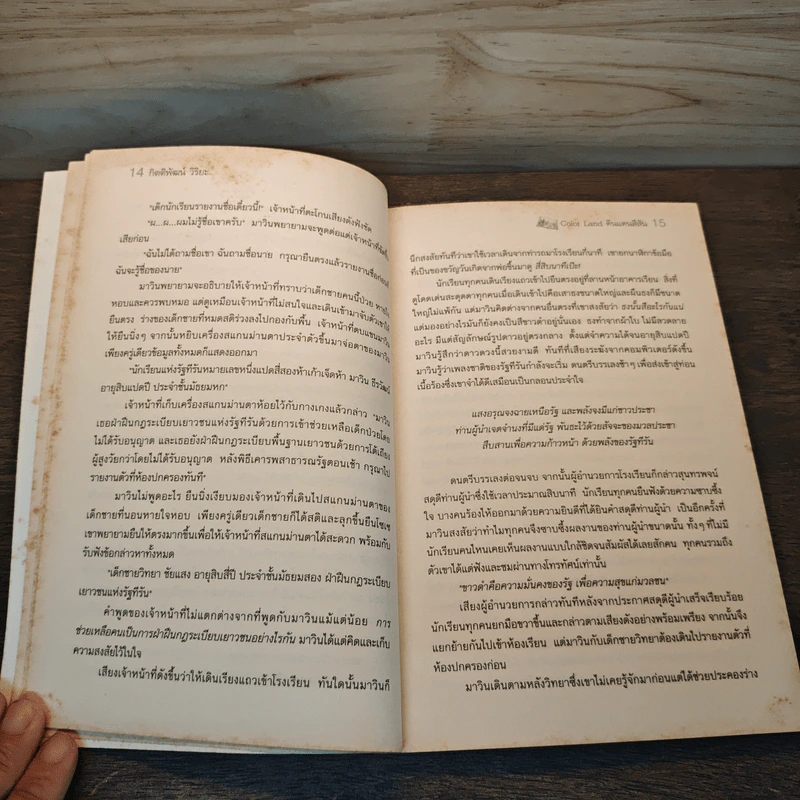 14 กิตติพัฒน์ วิริยะ
"เด็กนักเรียนรายงานชื่อเดี๋ยวนี้!" เจ้าหน้าที่ตะโกนเสียงดังฟังชัด
"ผ...ผ...ผมไม่รู้ชื่อเขาครับ" มาวินพยายามจะพูดต่อแต่เจ้าหน้าที่ชิงขึ้น
เสียก่อน
"ฉันไม่ได้ถามชื่อเขา ฉันถามชื่อนาย กรุณายืนตรงแล้วรายงานชื่อก่อนที่
ฉันจะรู้ชื่อของนาย"
มาวินพยายามจะอธิบายให้เจ้าหน้าที่ทราบว่าเด็กชายคนนี้ป่วย หายใจ
หอบและควรพบหมอ แต่ดูเหมือนเจ้าหน้าที่ไม่สนใจและเดินเข้ามาจับตัวเขาให้
ยืนตรง ร่างของเด็กชายที่หมดสติร่วงลงไปกองกับพื้น เจ้าหน้าที่ตบแขนมาวิน
ให้ยืนนิ่งๆ จากนั้นหยิบเครื่องสแกนม่านตาประจำตัวขึ้นมาจ่อตาของมาวิน
เพียงครู่เดียวข้อมูลทั้งหมดก็แสดงออกมา
"นักเรียนแห่งรัฐทีรันหมายเลขหนึ่งแปดสี่สองห้าเก้าเจ็ดห้า มาวิน ธีรวัฒน์
อายุสิบแปดปี ประจำชั้นมัธยมหก"
เจ้าหน้าที่เก็บเครื่องสแกนม่านตาห้อยไว้กับกางเกงแล้วกล่าว "มาวิน
เธอฝ่าฝืนกฎระเบียบเยาวชนแห่งรัฐทีรันด้วยการเข้าช่วยเหลือเด็กป่วยโดย
ไม่ได้รับอนุญาต และเธอยังฝ่าฝืนกฎระเบียบพื้นฐานเยาวชนด้วยการโต้เถียง
ผู้สูงวัยกว่าโดยไม่ได้รับอนุญาต หลังพิธีเคารพสาธารณรัฐตอนเช้า กรุณาไป
รายงานตัวที่ห้องปกครองทันที"
มาวินไม่พูดอะไร ยืนนิ่งเงียบมองเจ้าหน้าที่เดินไปสแกนม่านตาของ
เด็กชายที่นอนหายใจหอบ เพียงครู่เดียวเด็กชายก็ได้สติและลุกขึ้นยืนโซเซ
เขาพยายามยืนให้ตรงมากขึ้นเพื่อให้เจ้าหน้าที่สแกนม่านตาได้สะดวก พร้อมกับ
รับฟังข้อกล่าวหาทั้งหมด
"เด็กชายวิทยา ชัยแสง อายุสิบสี่ปี ประจำชั้นมัธยมสอง ฝ่าฝืนกฎระเบียบ
เยาวชนแห่งรัฐทีรัน"
คำพูดของเจ้าหน้าที่ไม่แตกต่างจากที่พูดกับมาวินแม้แต่น้อย การ
ช่วยเหลือคนเป็นการฝ่าฝืนกฎระเบียบเยาวชนอย่างไรกัน มาวินได้แต่คิดและเก็บ
ความสงสัยไว้ในใจ
เสียงเจ้าหน้าที่ดังขึ้นว่าให้เดินเรียงแถวเข้าโรงเรียน ทันใดนั้นมาวินก็
Color Land ดินแดนสีสัน 15
นึกสงสัยทันทีว่าเขาใช้เวลาเดินจากท่ารถมาโรงเรียนกี่นาที เขายกนาฬิกาข้อมือ
ที่เป็นของขวัญวันเกิดจากพ่อขึ้นมาดู สี่สิบนาทีเป๊ะ!
นักเรียนทุกคนเดินเรียงแถวเข้าไปยืนตรงอยู่ที่ลานหน้าอาคารเรียน สิ่งที่
ดูโดดเด่นสะดุดตาทุกคนเมื่อเดินเข้าไปคือเสาธงขนาดใหญ่และผืนธงก็มีขนาด
ใหญ่ไม่แพ้กัน แต่มาวินคิดต่างจากคนอื่นตรงที่เขาสงสัยว่า ธงนั้นสีอะไรกันแน่
แต่มองอย่างไรมันก็ยังคงเป็นสีขาวดำอยู่นั่นเอง ธงทำจากผ้าใบ ไม่มีลวดลาย
อะไร มีแต่สัญลักษณ์รูปดาวอยู่ตรงกลาง ตั้งแต่จำความได้จนอายุสิบแปดปี
มาวินรู้สึกว่าดาวดวงนี้สวยงามดี ทันทีที่เสียงระฆังจากคอมพิวเตอร์ดังขึ้น
มาวินรู้ว่าเพลงชาติของรัฐทีรันกำลังจะเริ่ม ดนตรีบรรเลงช้าๆ เพื่อส่งเข้าสู่ท่อน
เนื้อร้องซึ่งเขาจำได้ดีเสมือนเป็นกลอนประจำใจ
แสงอรุณจงฉายเหนือรัฐ และพลังจงมีแก่ชาวประชา
ท่านผู้นำเจตจำนงที่มีแด่รัฐ พันธะไว้ด้วยสัจจะของมวลประชา
สืบสานเพื่อความก้าวหน้า ด้วยพลังของรัฐทีรัน
ดนตรีบรรเลงต่อจนจบ จากนั้นผู้อำนวยการโรงเรียนก็กล่าวสุนทรพจน์
สดุดีท่านผู้นำซึ่งใช้เวลาประมาณสิบนาที นักเรียนทุกคนยืนฟังด้วยความซาบซึ้ง
ใจ บางคนร้องไห้ออกมาด้วยความยินดีที่ได้ยินคำสดุดีท่านผู้นำ เป็นอีกครั้งที่
มาวินสงสัยว่าทำไมทุกคนจึงซาบซึ้งผลงานของท่านผู้นำขนาดนั้น ทั้งๆ ที่ไม่มี
นักเรียนคนไหนเคยเห็นผลงานแบบใกล้ชิดจนสัมผัสได้เลยสักคน ทุกคนรวมถึง
ตัวเขาได้แต่ฟังและชมผ่านทางโทรทัศน์เท่านั้น
"ขาวดำคือความมั่นคงของรัฐ เพื่อความสุขแก่มวลชน"
เสียงผู้อำนวยการกล่าวทันทีหลังจากประกาศสดุดีผู้นำเสร็จเรียบร้อย
นักเรียนทุกคนยกมือขวาขึ้นและกล่าวตามเสียงดังอย่างพร้อมเพรียง จากนั้นจึง
แยกย้ายกันไปเข้าห้องเรียน แต่มาวินกับเด็กชายวิทยาต้องเดินไปรายงานตัวที่
ห้องปกครองก่อน
มาวินเดินตามหลังวิทยาซึ่งเขาไม่เคยรู้จักมาก่อนแต่ได้ช่วยประคองร่าง